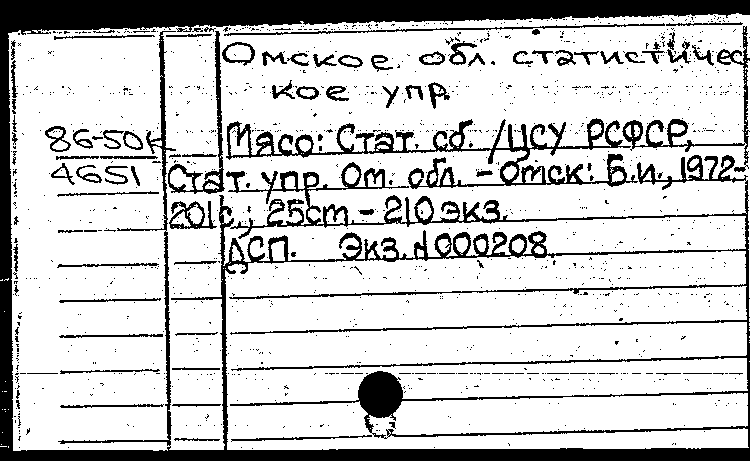 Омское обл. статистичес
кое упр.
86-50к Мясо: Стат. сб. /ЦСУ РСФСР,
4651 Стат. упр. Ом. обл. - Омск: Б.и., 1972-
201с.; 25cm - 210 экз.
ДСП. Экз. N 000208.